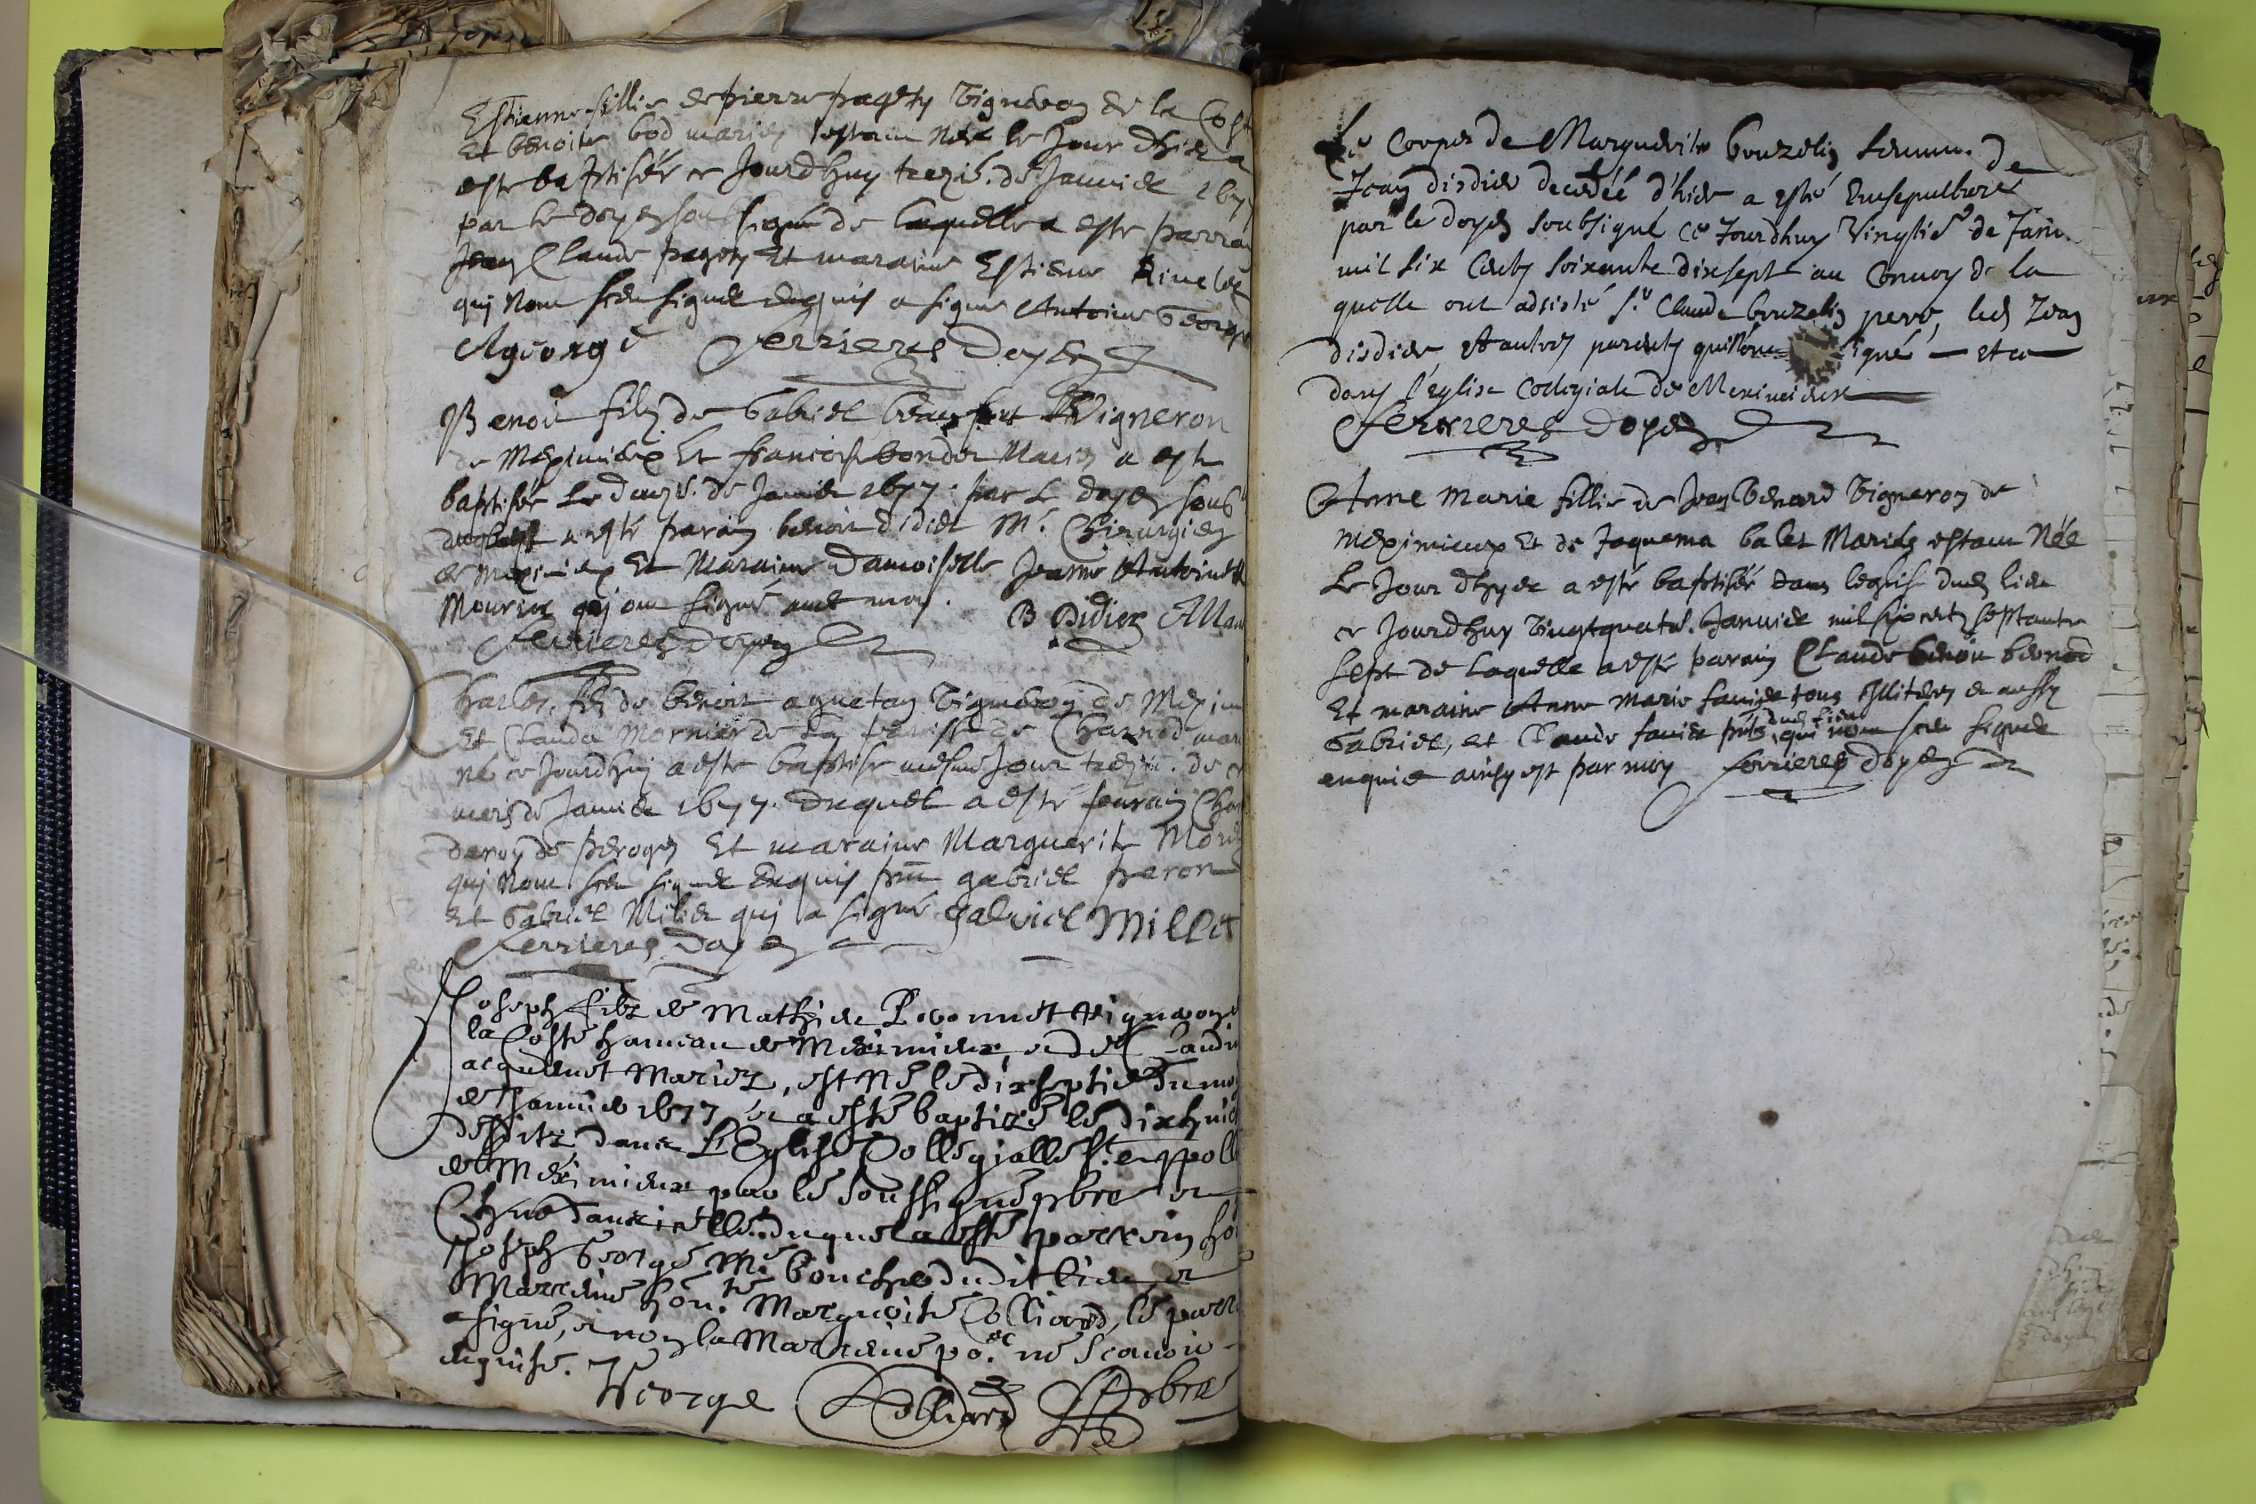 Estienne fillie de pierre pagoty Vigneron de la Cost
et benoite bod mariez estant née le Jour d'hier a
este baptisée ce Jourdhuy trezie. de Januier 167
par le doyen soubsigné de laquelle a esté parrai
Jean Claude pagoty Et maraine Estienne
qui nont sceu signer enquis a signé Antoine George
AGeorge ferrieres doyen
Benoit filz de Gabriel beau Vigneron
de Meximieux Et francoise bondor Mariez a esté
baptisée Le de Januier 1677. par Le doyen soub
duquel a esté parain benoit didier Mᵉ. Chirurgien
de meximieux Et Maraine Damoiselle Jeanne Antoinette
Mourier qui ont signé auec moy. B Didier AMau
ferrieres doyen
Charles filz de benoit aguetan Vigneron de Mexim
Et Clauda Mornier de la parisse de Charnod mari
né ce Jourdhuy a esté baptisé mesme Jour trezie. de ce
mois de Januier 1677. duquel a esté parain Cha
deroy de peroges Et maraine Marguerite Mor
qui nont sceu signer enquis gabriel peron
Et Gabriel Milliet qui a signé Gabriel Millet
ferrieres doyen
Joseph filz de Mathieu Peronnet Vigneron
la Coste hameau de Meximieux, et de Claudi
acquenet Mariez, est né le dixseptie du mo
de Januier 1677 et a esté baptizé le dixhuict
desditz dans L'Eglise Collegialle Sᵗ. appoll
de Meximieux par le soussigné pbre et
Chne dans icelle. duquel a esté parrein ho
Joseph George Mᵉ boucher dudit lieu, et
Marreine honᵗᵉ. Marguerite Colliard, le parr
signé, et non la Marreine poᵉʳ. ne Scauoir
enquise. JGeorge Colliard pbre
Le Corps de Marguerite bouzelin femme de
Jean disdier decedée d'hier a esté Ensepulturé
par le doyen soubsigné ce Jourdhuy Vingtié. de Janu.
mil six Cents soixante dixsept au Conuoy de la
quelle ont adsisté Sʳ Claude bouzelin pere, led Jean
disdier et autres parents qui nont signé — et ce
dans l'Eglise Collegiale de Meximieux
ferrieres doyen
Anne Marie fillie de Jean Benard Vigneron de
meximieux Et de Jaquema balet Mariez estant Née
Le Jour d'hyer a esté baptisée dans leglise dud lieu
ce Jourdhuy Vingtquatr. Januier mil six cents septante
sept de laquelle a esté parain Claude benoit benard
Et maraine Anne Marie fauier tous Illiterez et aussy
dud lieu
Gabriel, et Claude fauier pnts, qui nont sceu signer
enquis ainsy est par moy ferrieres doyen